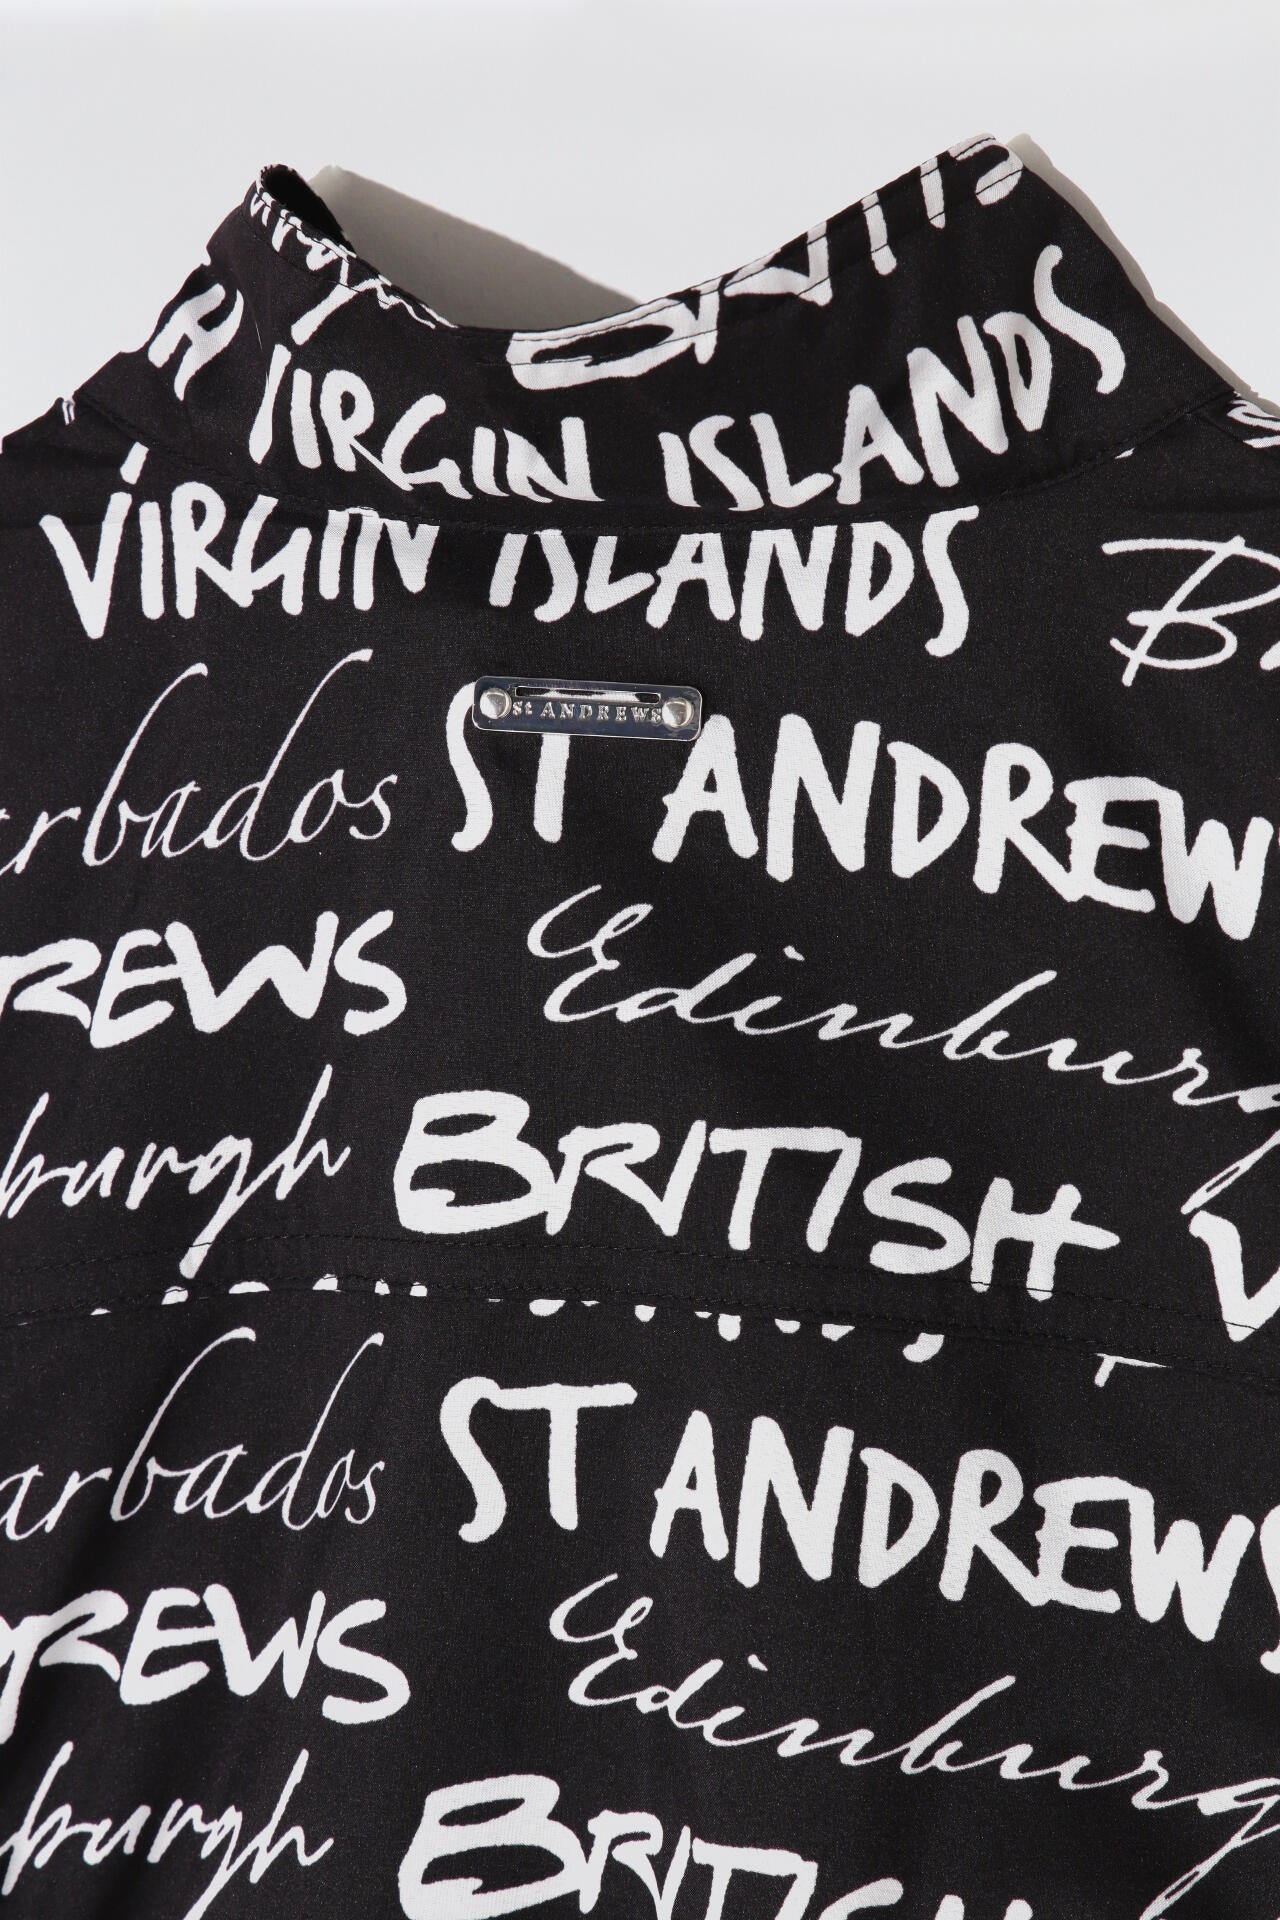 VIRGIN ISLANDS
VIRGIN ISLANDS
st ANDREWS
ST ANDREW
REWS
Edinburg
burgh
BRITISH
ST ANDREWS
REWS
Edinburg
burgh
BRITISH